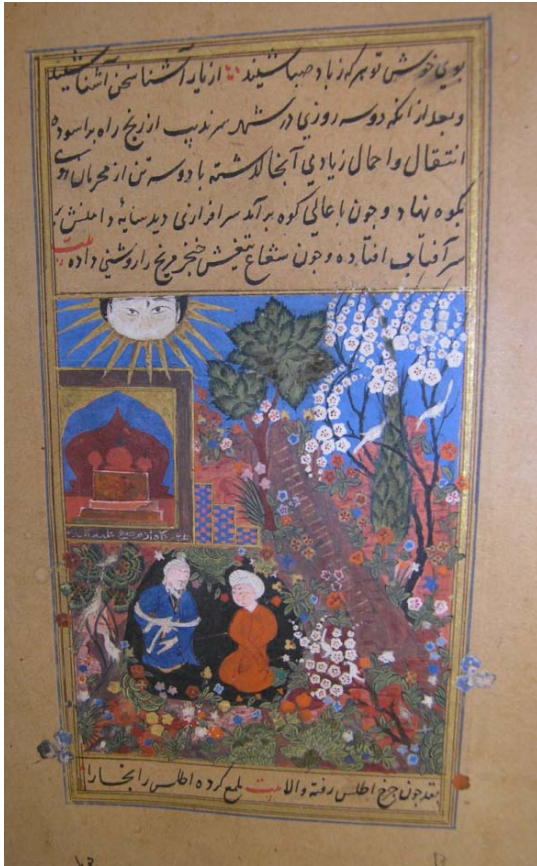 بوي خوشي تو هر که ز باد صبا شنید از یار آشنا سخن آشنا شنید
و بعد از انکه دو سه روزي در شهر سرندیب از رنج راه براسوده
انتقال و احمال زیادي آنجا گذاشته با دو سه تن از محرمان روی
بکوه نهاد و چون باعالی کوه برآمد سرافرازی دید سایۀ دامنش بر
سر آفتاب افتاده و چون شعاع تیغش خنجر مریخ را روشنی داده بیت
بقد چون چرخ اطلس رفته والا بیت کرده اطلس را